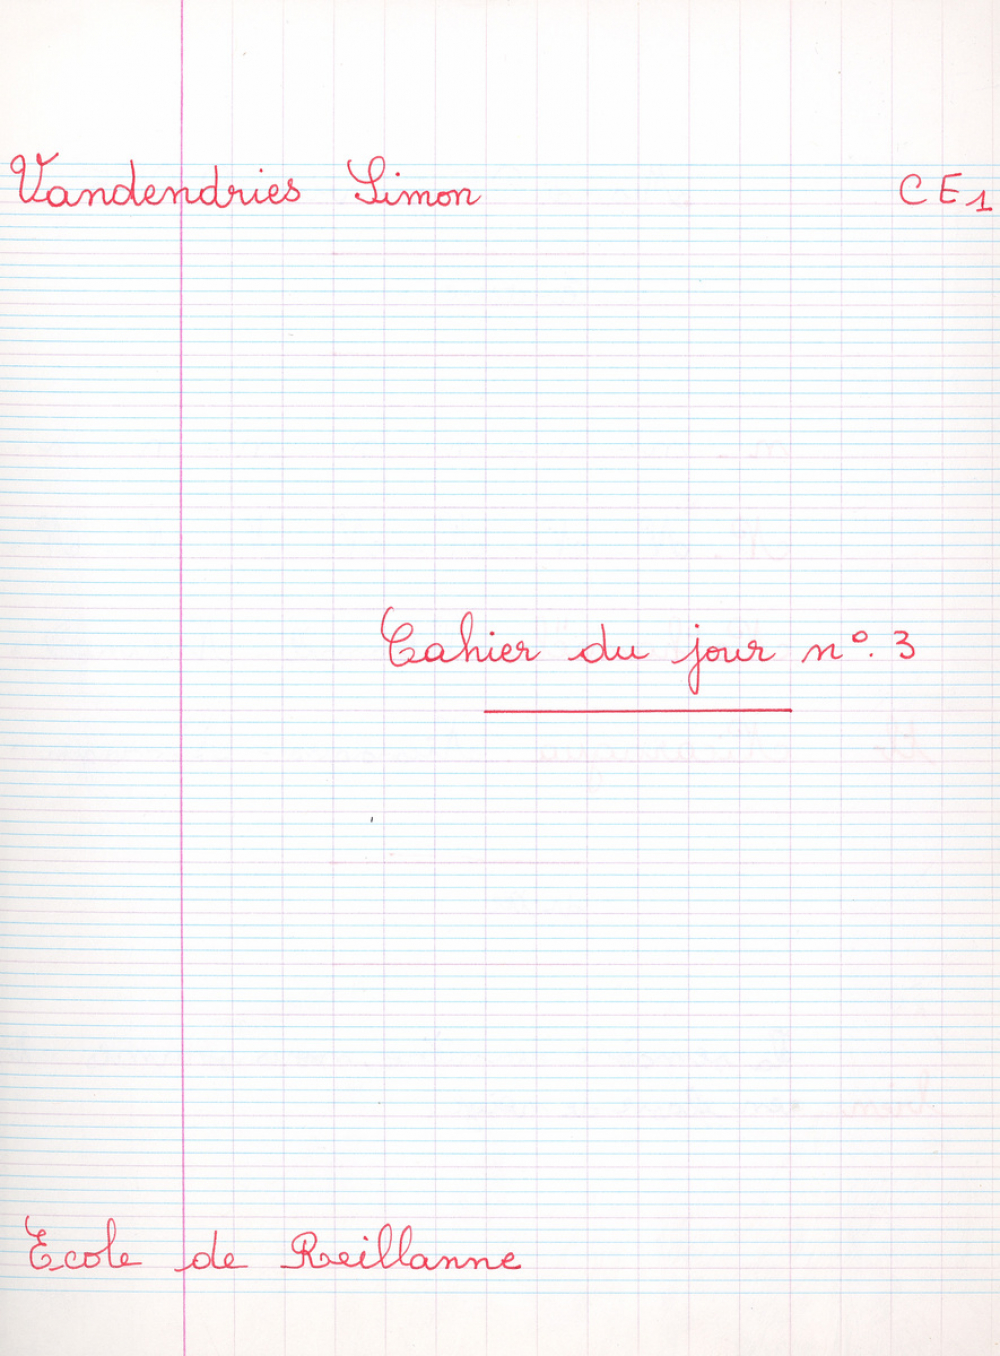 Vandendries Simon CE1
Cahier du jour n°. 3
Ecole de Reillanne